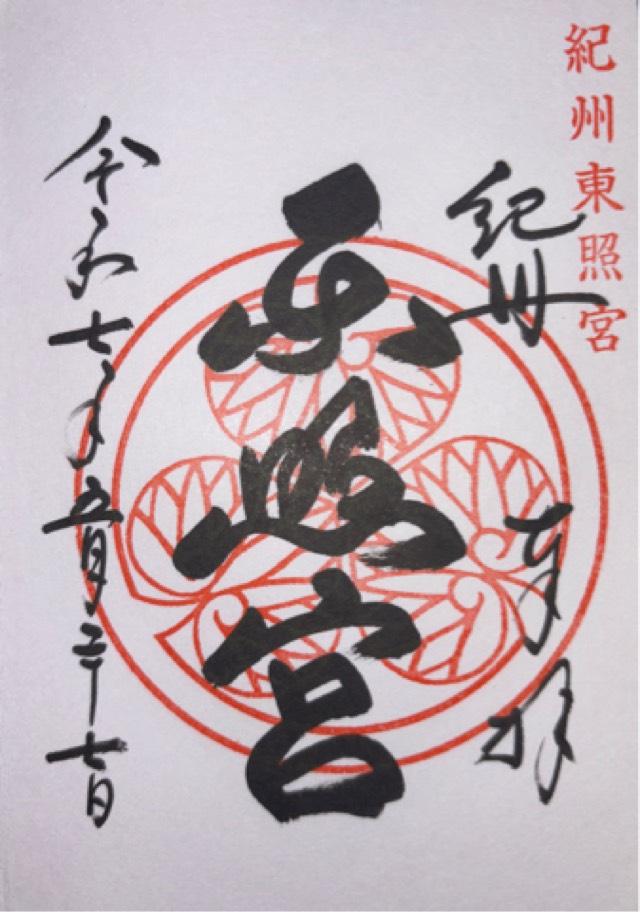 紀州東照宮
紀州
奉拝
東照宮
令和七年五月二十七日